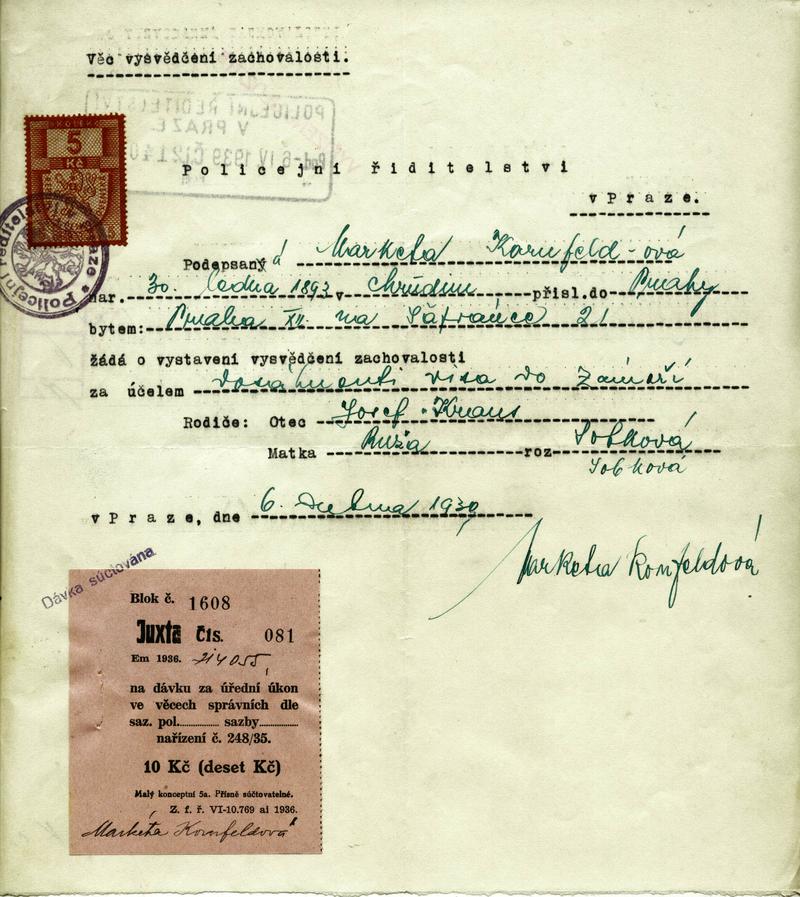 Věc vysvědčení zachovalosti.
POLICEJNÍ ŘEDITELSTVÍ
V PRAZE
6 IV 1939
KOLEK
5
Kč
Policejní řiditelství
v Praze.
Policejní ředitelství
Podepsaný á Marketa Kornfeld-ová
nar. 30. ledna 1893 v Chrudim přísl.do Prahy
bytem: Praha XII. na Šafránce 21
žádá o vystavení vysvědčení zachovalosti
za účelem dosáhnutí visa do Zámoří
Rodiče: Otec Josef Kraus
Matka Ruža roz Sobková
Sobková
v Praze, dne 6. dubna 1939
Marketa Kornfeldová
Dávka súčtována
Blok č. 1608
Juxta čís. 081
Em 1936. 214055
na dávku za úřední úkon
ve věcech správních dle
saz. pol. sazby
nařízení č. 248/35.
10 Kč (deset Kč)
Malý konceptní 5a. Přísně súčtovatelné.
Z. f. ř. VI-10.769 ai 1936.
Markéta Kornfeldová